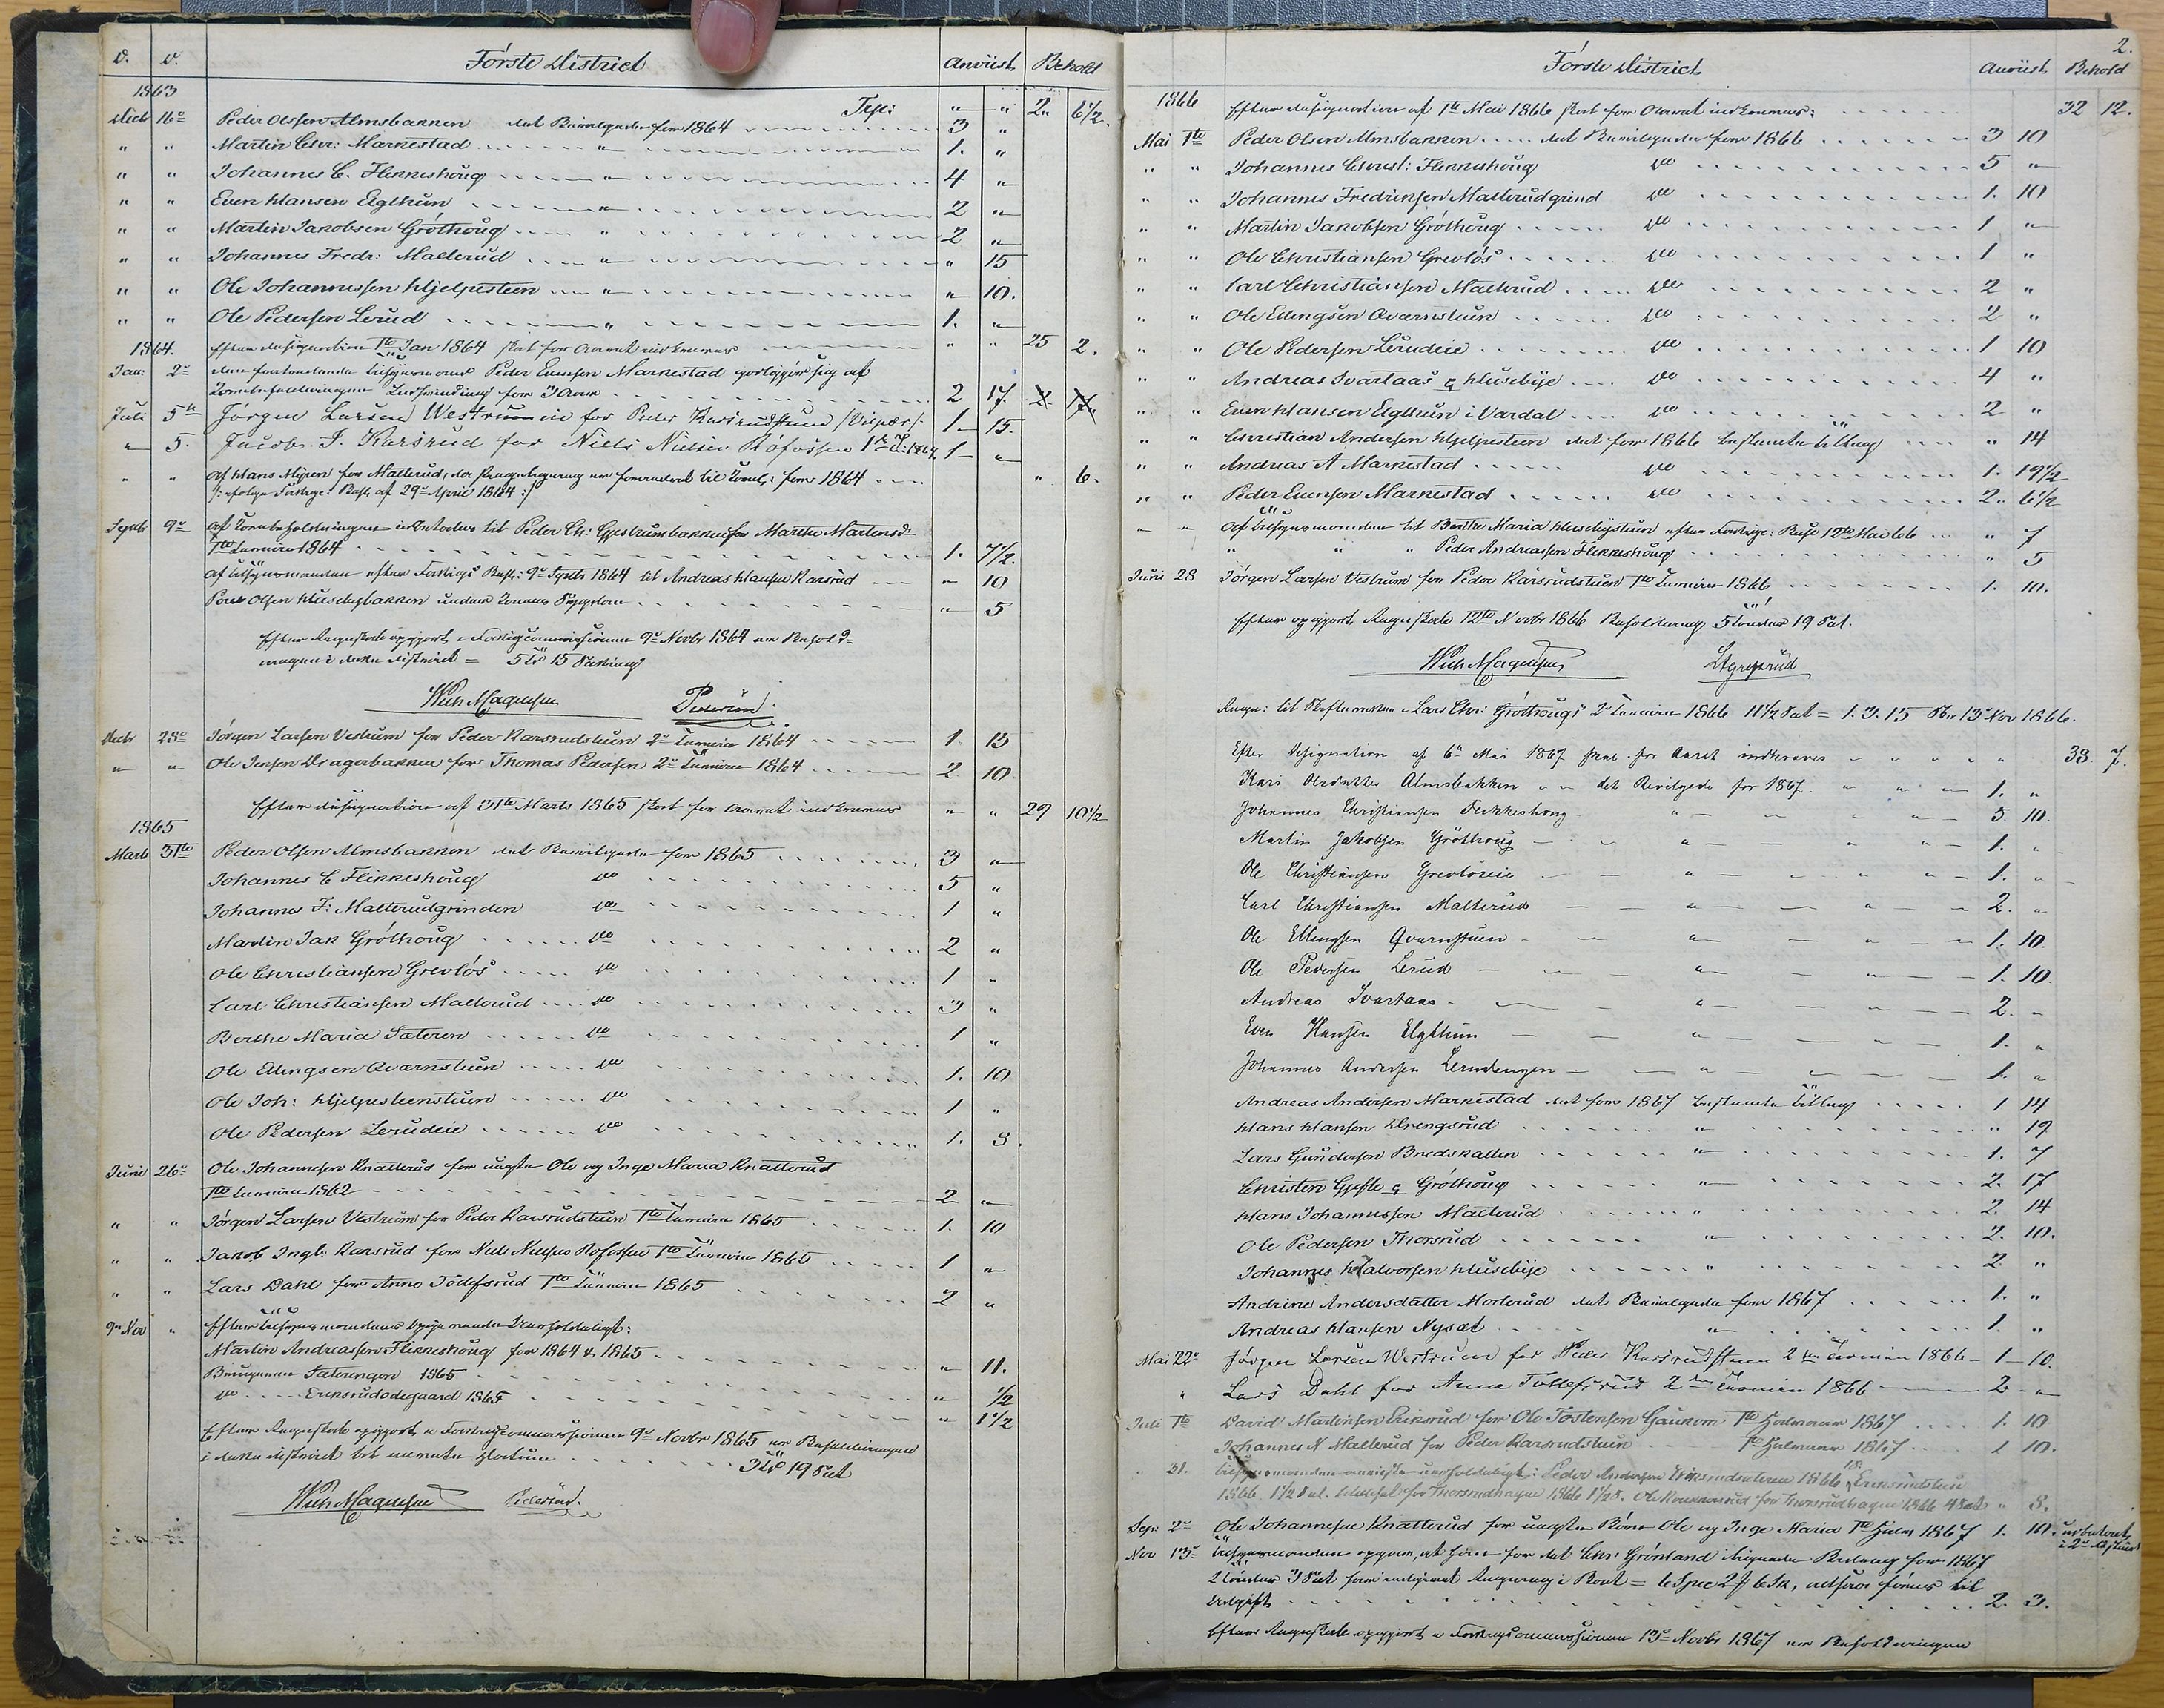 Første District Anviist Behold
1863
Trsp: " " 2 6½.
Decb 16de Peder Olsen Almsbakken det Bevilgede for 1864 3 "
" " Martin Chr: Markestad " 1. "
" " Johannes C. Flikkeshoug " 4 "
" " Even Hansen Elgthun " 2 "
" " Martin Jakobsen Grøthoug " 2 "
" " Johannes Fredr: Malterud " " 15
" " Ole Johannessen Hjelpesteen " " 10.
" " Ole Pedersen Lerud " 1. "
1864. Efter Designation 1te Jan 1864 skat for Aaret indkræves " " 25 2.
Jan: 2de Peder Evensen Markestad
for 3 Aar 2 17.
Juli 5te Jørgen Larsen Westrum for Peder Karsrudstuen 1 15.
" 5. Jacob J. Karsrud for Niels Nielsen 1ste T: 1864 1 "
" " af Hans Myren for Malterud, for 1864 " 6.
29de April 1864
Septb 9de til Peder Ch: for Marthe Martensd
1te Termin 1864 1. 7½.
af Tilsynsmanden efter 9de Septb 1864 til Andreas Hansen Karsrud " 10
Olsen Husebybakken under " 5
Efter Regnskab opgjort i Fattigcommissionen 9de Novbr 1864 er Behold-
ningen i dette District = 5 Td 15 Sætting
Wilh Magelssen
Decbr 28de Jørgen Larsen Vestrum for Peder Karsrudstuen 2de Termin 1864 1 15
" " Ole Jensen Dragerbakken for Thomas Pedersen 2de Termin 1864 2 10
Efter Designation af 31te Marts 1865 skat for Aaret indkræves " " 29 10½
1865
Marts 31te Peder Olsen Almsbakken det Bevilgede for 1865 3 "
Johannes C Flikkeshoug do 5 "
Johannes F: Malterudgrinden do 1 "
Martin Jak Grøthoug do 2 "
Ole Christiansen Grevløs do 1 "
Carl Christiansen Malterud do 3 "
Berthe Maria Sæteren do 1 "
Ole Elingsen Qværnstuen do 1. 10
Ole Joh: Hjelpesteenstuen do 1 "
Ole Pedersen Lerudeie do 1. 3.
Juni 26de Ole Johannesen Knatterud for Ole og Inge Maria Knatterud
1te Termin 1862 2 "
" " Jørgen Larsen Vestrum for Peder Karsrudstuen 1te Termin 1865 1. 10
" " Jakob Ingb: Karsrud for Niels Nielsen 1te Termin 1865 1 "
" " Lars Dahl for Anne Tollefsrud 1te Termin 1865 2 "
9de Nov " Efter Tilsynsmandens
Martin Andreassen Flikkeshoug for 1864 & 1865 " 11.
Sæterengen 1865 " ½
do Eriksrudødegaard 1865 " 1½
Efter Regnskab opgjort i Fattigcommissionen 9de Novbr 1865 er Beholdningen
i dette District 3 Td 19 Sæt
Wilh Magelssen
Første District Anviist Behold
2.
1866 Efter Designation af 1te Mai 1866 skat for Aaret indkræves: 32 12.
Mai 1te Peder Olsen Almsbakken det Bevilgede for 1866 3 10
" " Johannes Christ: Flikkeshoug do 5 "
" " Johannes Fredriksen Malterudgrind do 1. 10
" " Martin Jakobsen Grøthoug do 1 "
" " Ole Christiansen Grevløs do 1 "
" " Carl Christiansen Malterud do 2 "
" " Ole Elingsen Qværnstuen do 2 "
" " Ole Pedersen Lerudeie do 1 10
" " Andreas Svartaas & Husebye do 4 "
" " Even Hansen Elgthun i Vardal do 2 "
" " Christian Andersen Hjelpesteen det for 1866 bestemte Tillæg " 14
" " Andreas A Markestad do 1. 19½
" " Peder Evensen Markestad do 2. 6½
" " af Tilsynsmanden til Berthe Maria Husebystuen efter 12te Mai 66 " 7
" " " Peder Andreassen Flikkeshoug " 5
Juni 28 Jørgen Larsen Vestrum for Peder Karsrudstuen 1te Termin 1866 1. 10.
Efter opgjort Regnskab 12te Novbr 1866 Beholdning 5 Tønder 19 Sæt.
Wilh Magelssen
Lars Chr: Grøthougs 2de Termin 1866 11½ Sæt = 1. 3. 15 13de Nov 1866.
Efter Designation af 6te Mai 1867 skat for Aaret indkræves 38. 7.
Kari Olsdatter Almsbakken det Bevilgede for 1867. 1. "
Johannes Christiansen Flikkeshoug " 5. 10.
Martin Jakobsen Grøthoug " 1. "
Ole Christiansen Grevløseie " 1. "
Carl Christiansen Malterud " 2. "
Ole Ellingsen Qvernstuen " 1. 10.
Ole Pedersen Lerud " 1. 10.
Andreas Svartaas " 2. "
Even Hansen Elgthun " 1. "
Johannes Andersen Lerudengen " 1. "
Andreas Andersen Markestad det for 1867 bestemte Tillæg 1 14
Hans Hansen Drengsrud " " 19
Lars Gundersen Bredskallen " 1. 7
Christen Gjesle & Grøthoug " 2. 17
Hans Johannessen Malterud " 2. 14
Ole Pedersen Thorsrud " 2. 10.
Johannes Halvorsen Husebye " 2. "
Andrine Andersdatter Morterud det Bevilgede for 1867 1. "
Andreas Hansen Nysæt " 1. "
Mai 22de Jørgen Larsen Westrum for Peder Karsrudstuen 2den Termin 1866 1 10.
" Lars Dahl for Anne Tollefsrud 2den Termin 1866 2 "
Juli 1te David Martinsen Eriksrud for Ole Tostensen Gaukom 1te Halvaar 1867 1. 10
Johannes N Malterud for Peder Karsrudstuen 1te Halvaar 1867 1 10.
" 31. Tilsynsmanden Peder Andersen Eriksrudsæteren 1866
1866 1½ Sæt. for Thorsrudhagen 1866 for Thorsrudhagen 1866 4 Sæt " 8.
Sep: 2de Ole Johannesen Knatterud for Ole og Inge Maria 1te Halv 1867 1. 10.
Nov 13de Tilsynsmanden for det Chr: Grønland for 1867
2 Tønder 3 Sæt
Udgift 2. 3.
Efter Regnskab opgjort i Fattigcommissionen 13de Novbr 1867 er Beholdningen